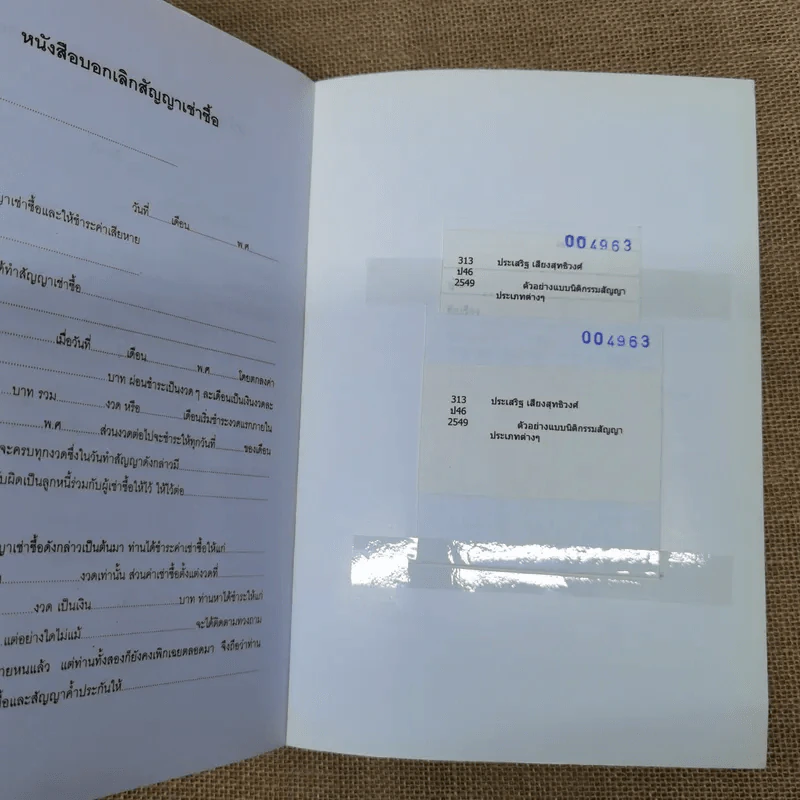 หนังสือบอกเลิกสัญญาเช่าซื้อ
วันที่ เดือน พ.ศ.
ญาเช่าซื้อและให้ชำระค่าเสียหาย
ด้ทำสัญญาเช่าซื้อ
เมื่อวันที่ เดือน พ.ศ. โดยตกลงค่า
บาท ผ่อนชำระเป็นงวดๆ ละเดือนเป็นเงินงวดละ
บาท รวม งวด หรือ เดือนเริ่มชำระงวดแรกภายใน
พ.ศ. ส่วนงวดต่อไปจะชำระให้ทุกวันที่ ของเดือน
จะครบทุกงวดซึ่งในวันทำสัญญาดังกล่าวมี
บผิดเป็นลูกหนี้ร่วมกับผู้เช่าซื้อให้ไว้ ให้ไว้ต่อ
ญาเช่าซื้อดังกล่าวเป็นต้นมา ท่านได้ชำระค่าเช่าซื้อให้แก่
งวดเท่านั้น ส่วนค่าเช่าซื้อตั้งแต่งวดที่
งวด เป็นเงิน บาท ท่านหาได้ชำระให้แก่
แต่อย่างใดไม่แม้ จะได้ติดตามทวงถาม
ายหนแล้ว แต่ท่านทั้งสองก็ยังคงเพิกเฉยตลอดมา จึงถือว่าท่าน
ซื้อและสัญญาค้ำประกันให้
004963
313 ประเสริฐ เสียงสุทธิวงศ์
ป46
2549 ตัวอย่างแบบนิติกรรมสัญญา
ประเภทต่างๆ
004963
313 ประเสริฐ เสียงสุทธิวงศ์
ป46
2549 ตัวอย่างแบบนิติกรรมสัญญา
ประเภทต่างๆ